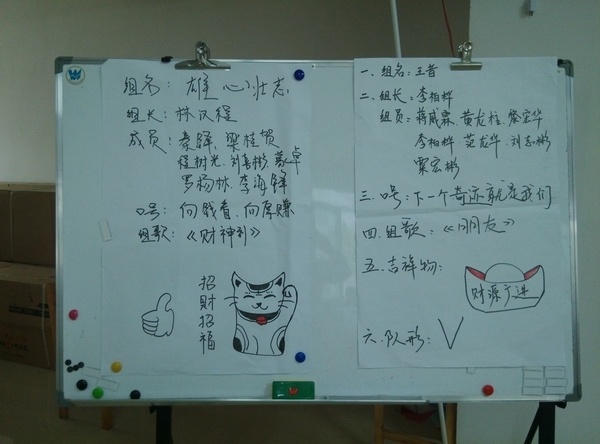 组名: 雄心壮志
组长: 林汉程
成员: 秦锋、梁桂贺
程树光、刘喜彬
罗杨林、李海锋
口号: 向钱看、向厚赚
组歌:《财神到》
招财招福
一、组名: 王者
二、组长: 李柏桦
组员: 蒋威霖、黄龙柱
李柏桦 范龙华、刘志彬
覃宏彬
三、口号: 下一个奇迹就是我们
四、组歌:《朋友》
五、吉祥物:
财源广进
六、队形: V